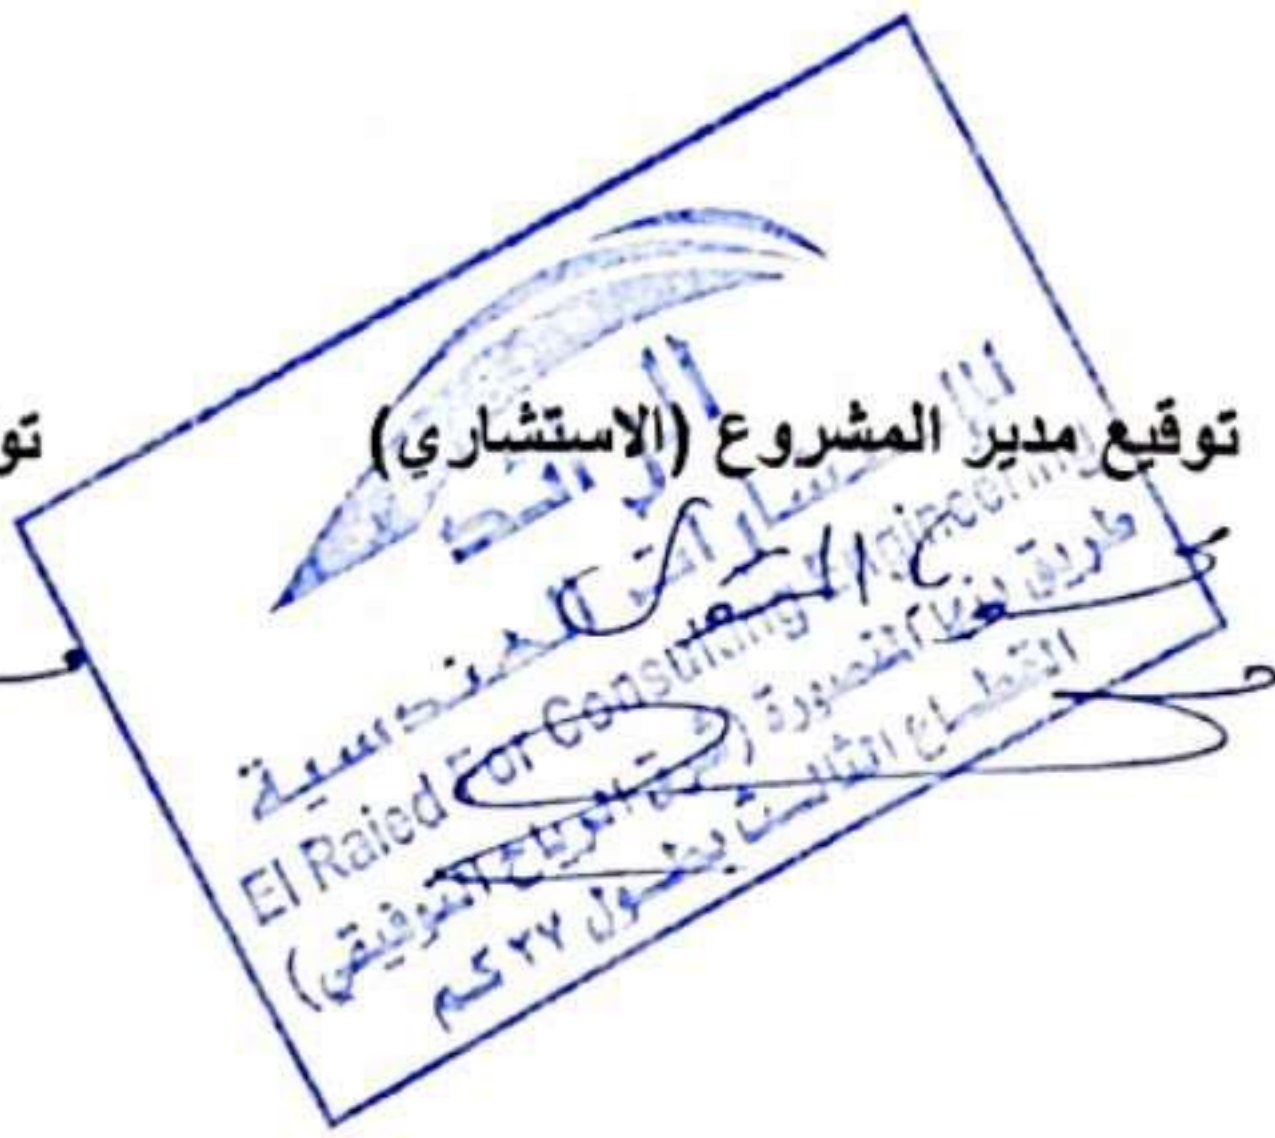 توقيع مدير المشروع (الاستشاري)
تو
الرائد
للاستشارات الهندسية
El Raied For Consulting Engineering
طريق بنها المنصورة (شرق الرياح التوفيقي)
القطاع الثالث بطول ٢٧ كم